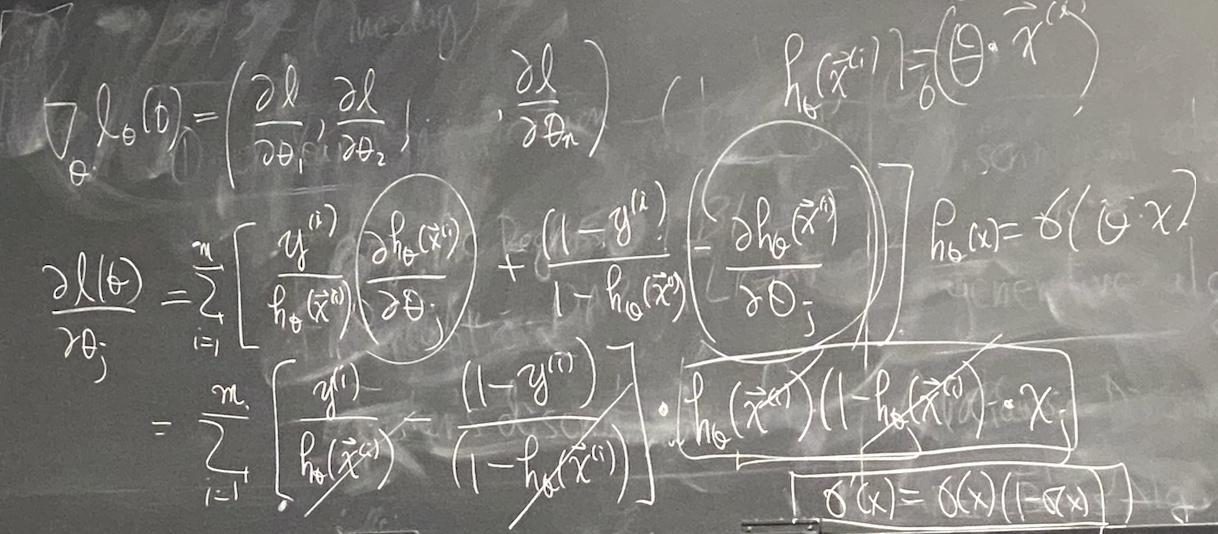 (Tuesday)
∇_θ l_θ(D) = (∂l/∂θ_1, ∂l/∂θ_2, , ∂l/∂θ_n) h_θ(x⃗^(i)) = σ(θ · x⃗^(i))
∂l(θ)/∂θ_j = Σ_{i=1}^{m} [ y^(i)/h_θ(x⃗^(i)) (∂h_θ(x⃗^(i))/∂θ_j) + (1 - y^(i))/(1 - h_θ(x⃗^(i))) (- ∂h_θ(x⃗^(i))/∂θ_j) ] h_θ(x) = σ(θ · x)
= Σ_{i=1}^{m} [ y^(i)/h_θ(x⃗^(i)) - (1 - y^(i))/(1 - h_θ(x⃗^(i))) ] · h_θ(x⃗^(i))(1 - h_θ(x⃗^(i))) · x_j
σ'(x) = σ(x)(1 - σ(x))